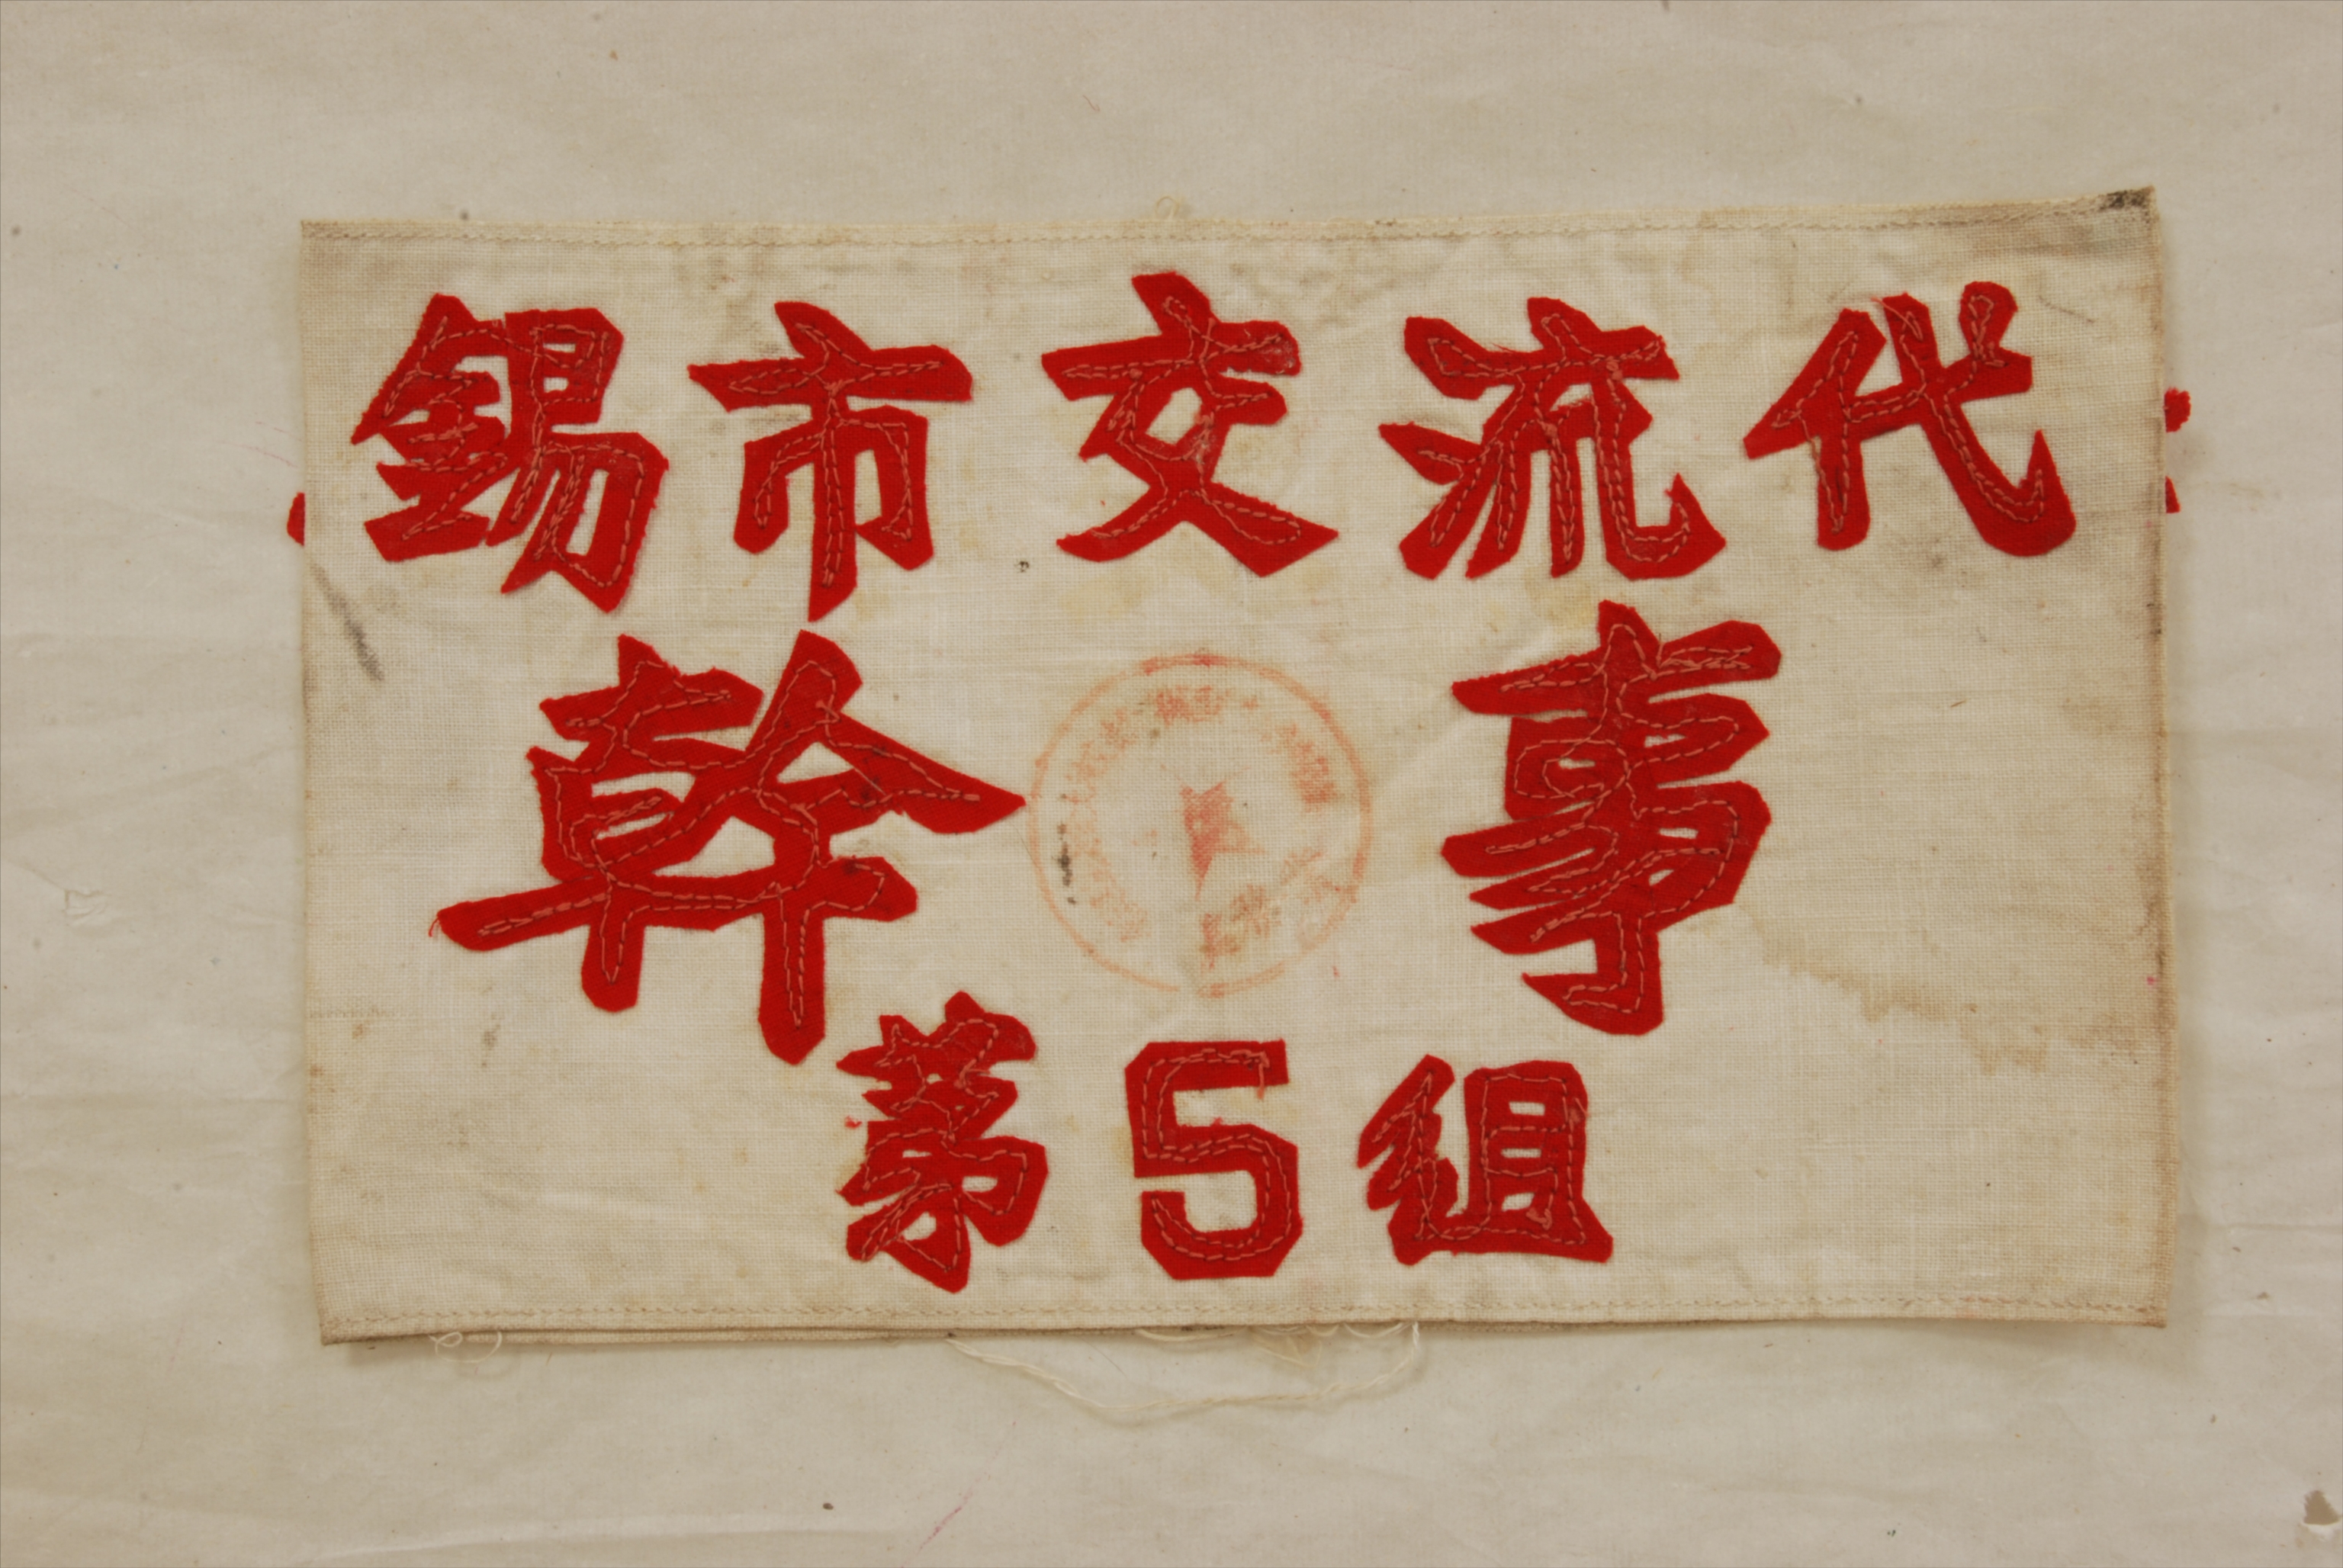 錫市交流代
幹事
第5組